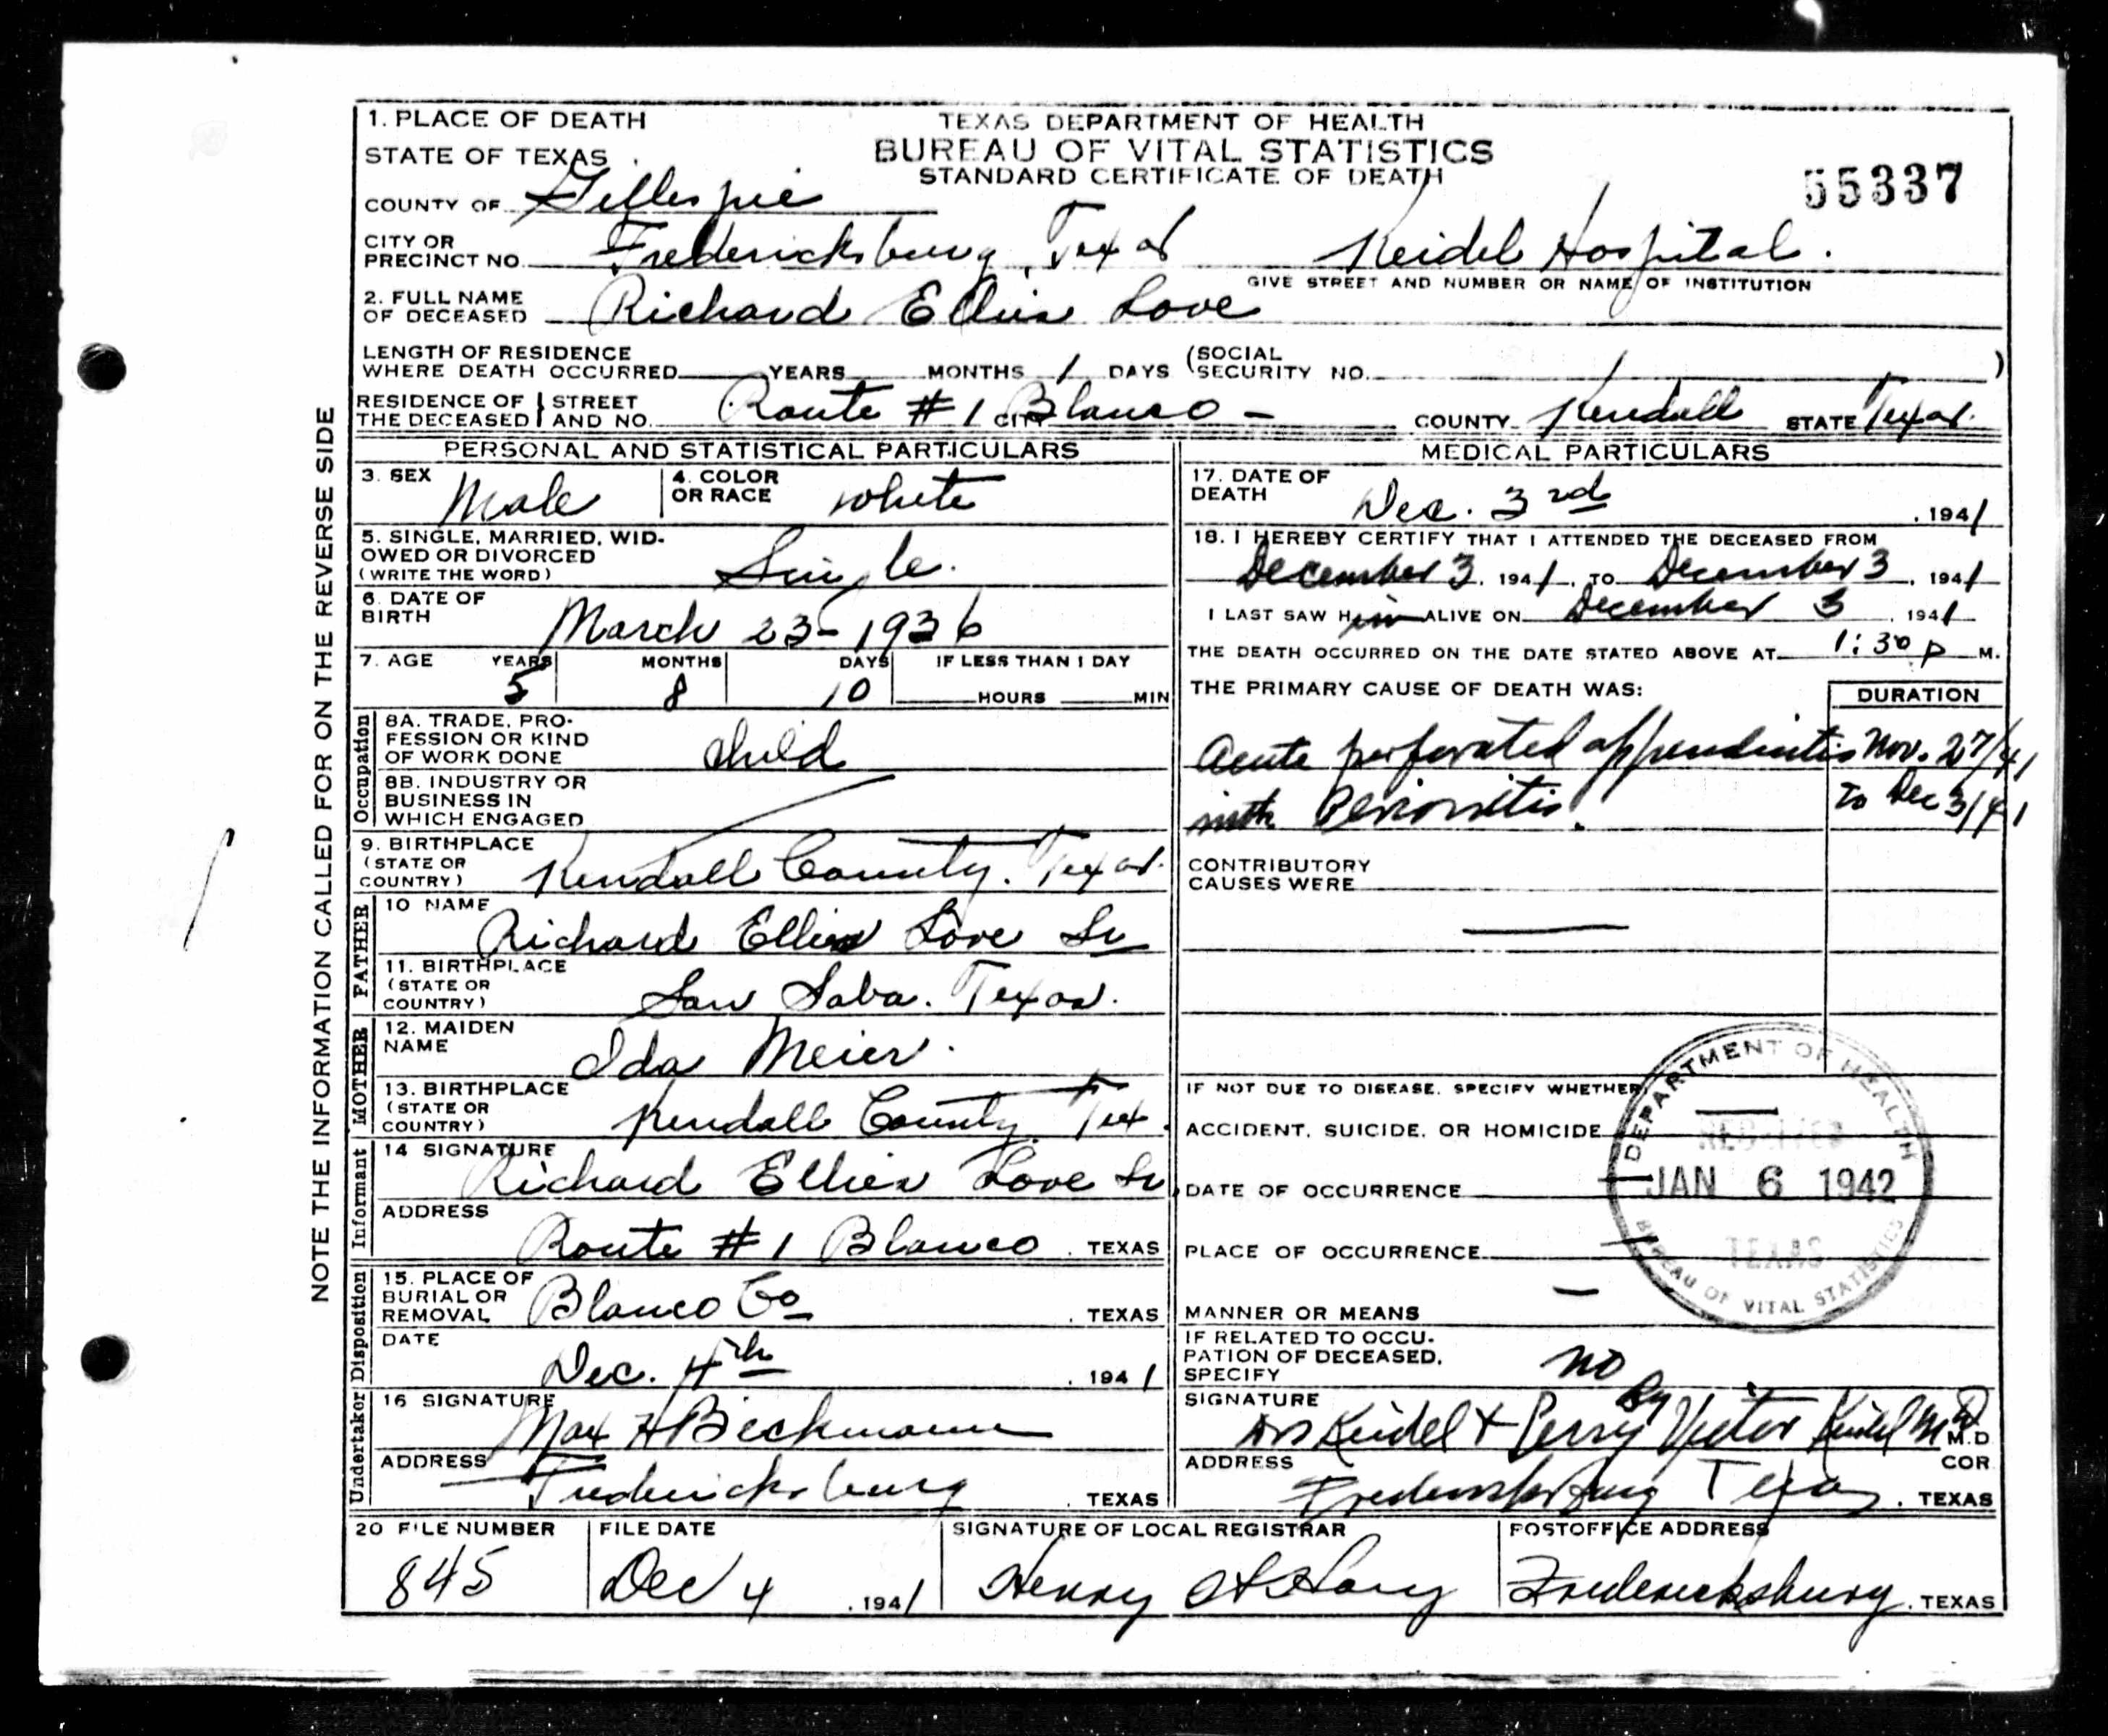 1. PLACE OF DEATH
TEXAS DEPARTMENT OF HEALTH
BUREAU OF VITAL STATISTICS
STANDARD CERTIFICATE OF DEATH
55337
STATE OF TEXAS
COUNTY OF Gillespie
CITY OR PRECINCT NO. Fredericksburg, Texas Keidel Hospital.
GIVE STREET AND NUMBER OR NAME OF INSTITUTION
2. FULL NAME OF DECEASED Richard Ellies Love
LENGTH OF RESIDENCE WHERE DEATH OCCURRED YEARS MONTHS 1 DAYS (SOCIAL SECURITY NO. )
RESIDENCE OF THE DECEASED } STREET AND NO. Route #1 CITY Blanco - COUNTY Kendall STATE Texas.
PERSONAL AND STATISTICAL PARTICULARS
3. SEX Male 4. COLOR OR RACE White
5. SINGLE, MARRIED, WIDOWED OR DIVORCED (WRITE THE WORD) Single.
6. DATE OF BIRTH March 23-1936
7. AGE YEARS MONTHS DAYS IF LESS THAN 1 DAY
5 8 10 HOURS MIN
Occupation
8A. TRADE, PROFESSION OR KIND OF WORK DONE child
8B. INDUSTRY OR BUSINESS IN WHICH ENGAGED
9. BIRTHPLACE (STATE OR COUNTRY) Kendall County. Texas.
FATHER
10 NAME Richard Ellies Love Sr
11. BIRTHPLACE (STATE OR COUNTRY) San Saba. Texas.
MOTHER
12. MAIDEN NAME Ida Meier.
13. BIRTHPLACE (STATE OR COUNTRY) Kendall County. Tex.
Informant
14 SIGNATURE Richard Ellies Love Sr
ADDRESS Route #1 Blanco. TEXAS
Disposition
15. PLACE OF BURIAL OR REMOVAL Blanco Co. TEXAS
DATE Dec. 4th, 1941
Undertaker
16 SIGNATURE Max H Beckmann
ADDRESS Fredericksburg. TEXAS
MEDICAL PARTICULARS
17. DATE OF DEATH Dec. 3rd, 1941
18. I HEREBY CERTIFY THAT I ATTENDED THE DECEASED FROM
December 3, 1941, TO December 3, 1941
I LAST SAW Him ALIVE ON December 3, 1941
THE DEATH OCCURRED ON THE DATE STATED ABOVE AT 1:30 P M.
THE PRIMARY CAUSE OF DEATH WAS: DURATION
Acute perforated appendicitis Nov. 27/41
with Peritonitis. to Dec 3/41
CONTRIBUTORY CAUSES WERE
IF NOT DUE TO DISEASE, SPECIFY WHETHER
ACCIDENT, SUICIDE, OR HOMICIDE
DATE OF OCCURRENCE
PLACE OF OCCURRENCE
MANNER OR MEANS
DEPARTMENT OF HEALTH
RECEIVED
JAN 6 1942
TEXAS
BUREAU OF VITAL STATISTICS
IF RELATED TO OCCUPATION OF DECEASED, SPECIFY no
SIGNATURE Drs Keidel & Perry By Victor Keidel MD M.D
ADDRESS COR
Fredericksburg Texas. TEXAS
20 FILE NUMBER FILE DATE SIGNATURE OF LOCAL REGISTRAR POSTOFFICE ADDRESS
845 Dec 4, 1941 Henry Fredericksburg. TEXAS
NOTE THE INFORMATION CALLED FOR ON THE REVERSE SIDE